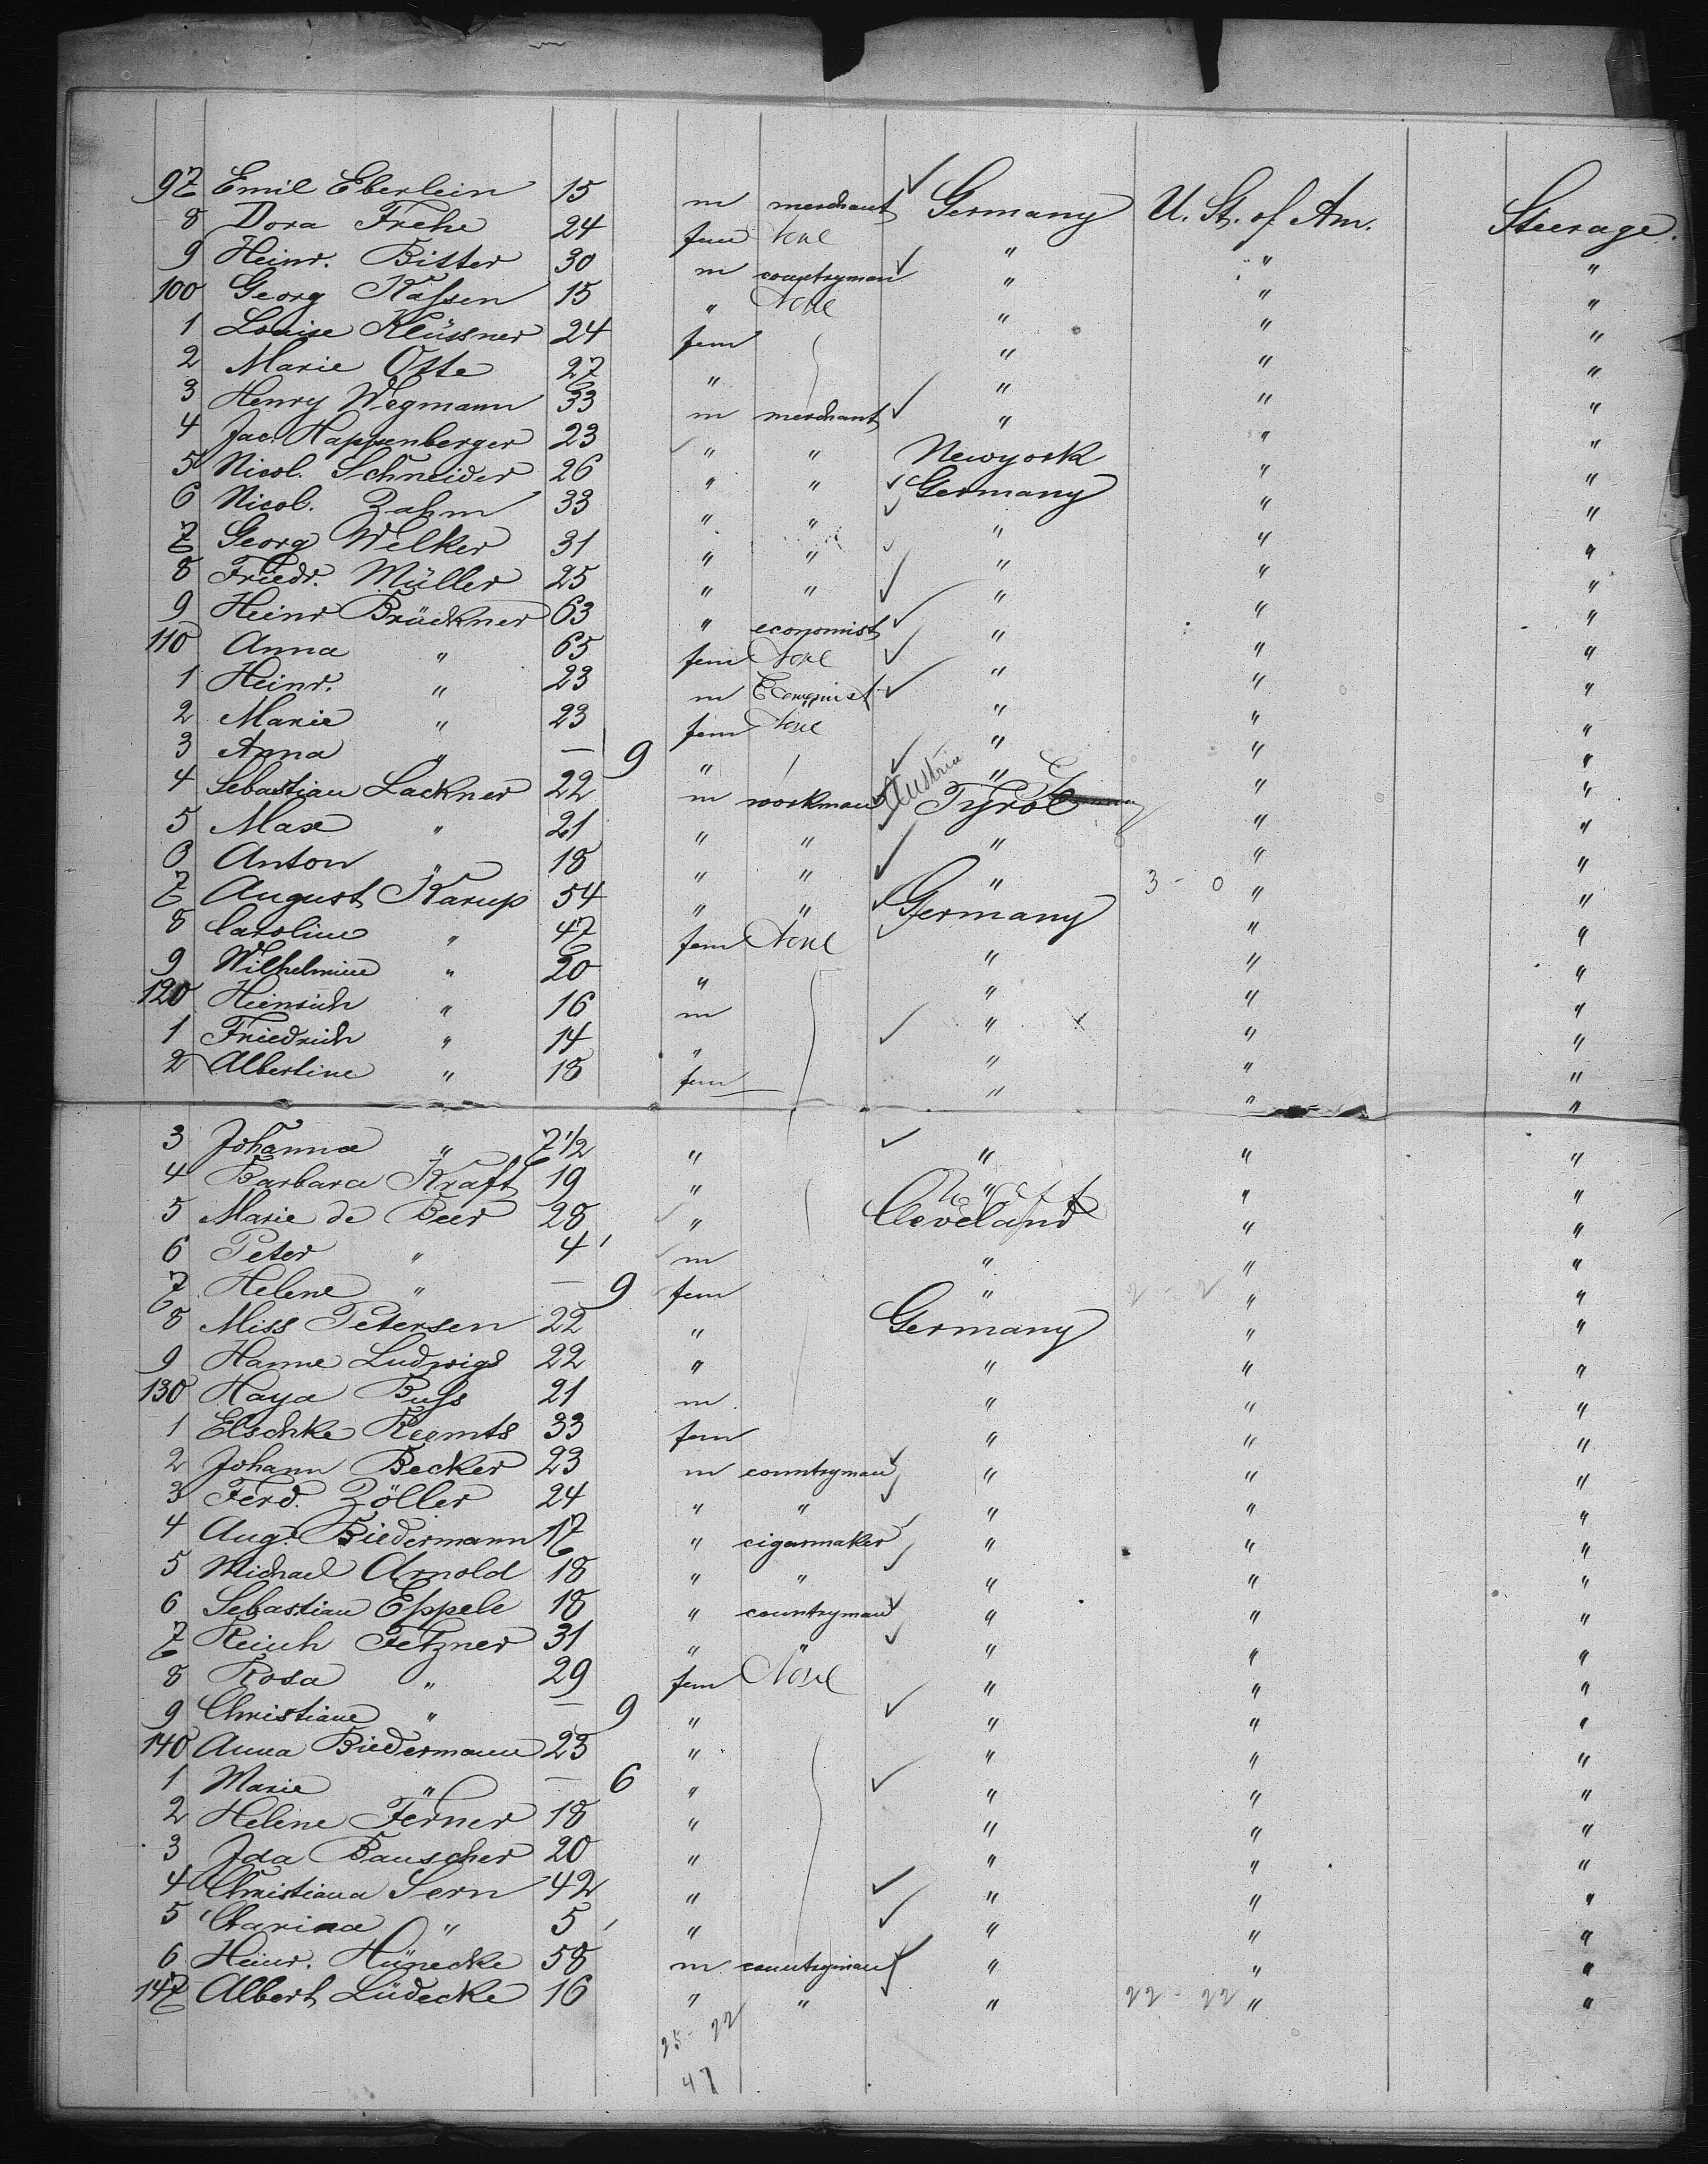 97 Emil Eberlein 15 m merchant Germany U. St. of Am. Steerage.
8 Dora Frehe 24 fem None " " "
9 Heinr. Bitter 30 m countryman " " "
100 Georg Kaſsen 15 " None " " "
1 Louise Klüssner 24 fem " " "
2 Marie Otte 27 " " " "
3 Henry Wegmann 33 m merchant " " "
4 Jac. Happenberger 23 " " Newyork " "
5 Nicol. Schneider 26 " " Germany " "
6 Nicol. Zahm 33 " " " " "
7 Georg Welker 31 " " " " "
8 Friedr. Müller 25 " " " " "
9 Heinr Brückner 63 " economist " " "
110 Anna " 65 fem None " " "
1 Heinr. " 23 m Economist " " "
2 Marie " 23 fem None " " "
3 Anna " — 9 " " " "
4 Sebastian Lackner 22 m workman Austria Tyrol Germany " "
5 Max " 21 " " " " "
6 Anton " 18 " " " " "
7 August Karup 54 " " Germany 3 - 0 " "
8 Caroline " 47 fem None " " "
9 Wilhelmine " 20 " " " "
120 Heinrich " 16 m " " "
1 Friedrich " 14 " " " "
2 Albertine " 18 fem " " "
3 Johanna " 7 1/2 " " " "
4 Barbara Kraft 19 " " " "
5 Marie de Beer 28 " Cleveland " "
6 Peter " 4 m " " "
7 Helene " — 9 fem " 2 - 2 " "
8 Miss Petersen 22 " Germany " "
9 Hanne Ludwigs 22 " " " "
130 Haya Buſs 21 m " " "
1 Elschke Reemts 33 fem " " "
2 Johann Becker 23 m countryman " " "
3 Ferd. Zöller 24 " " " " "
4 Aug. Biedermann 17 " cigarmaker " " "
5 Michael Arnold 18 " " " " "
6 Sebastian Eppele 18 " countryman " " "
7 Reinh Fetzner 31 " " " " "
8 Rosa " 29 fem None " " "
9 Christiane " — 9 " " " "
140 Anna Biedermann 23 " " " "
1 Marie " — 6 " " " "
2 Helene Ferner 18 " " " "
3 Ida Bauscher 20 " " " "
4 Christiana Sern 42 " " " "
5 Clarina " 5 " " " "
6 Heinr. Hünecke 58 m countryman " " "
147 Albert Lüdecke 16 " " " 22 - 22 " "
25 - 22
47